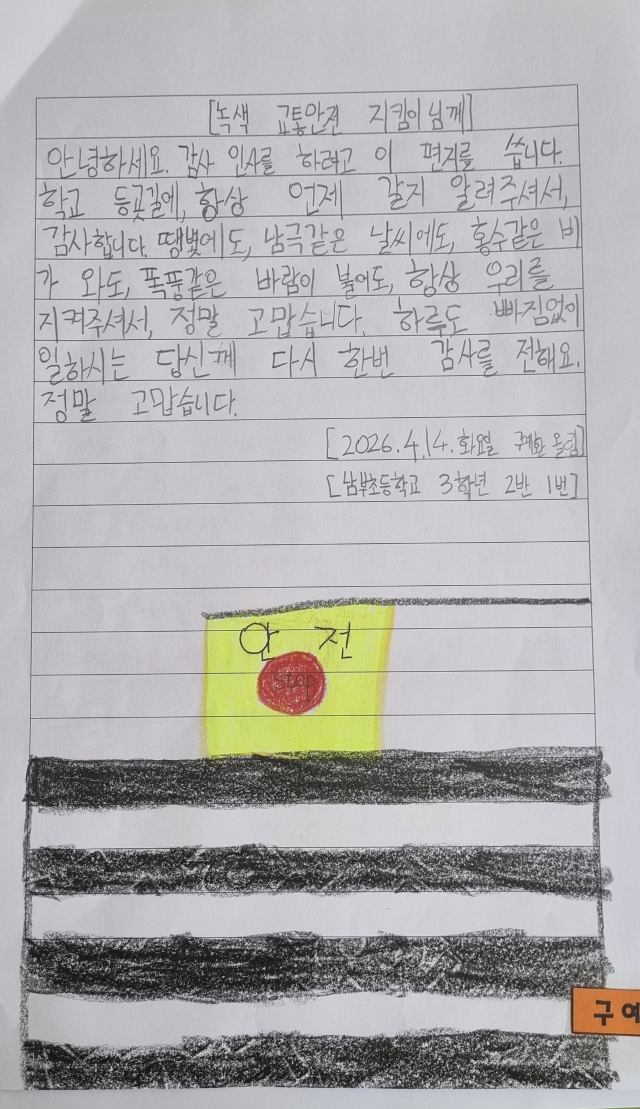 [녹색 교통안전 지킴이님께]
안녕하세요. 감사 인사를 하려고 이 편지를 씁니다.
학교 등굣길에, 항상 언제 갈지 알려주셔서,
감사합니다. 땡볕에도, 남극같은 날씨에도, 홍수같은 비
가 와도, 폭풍같은 바람이 불어도, 항상 우리를
지켜주셔서, 정말 고맙습니다. 하루도 빠짐없이
일하시는 당신께 다시 한번 감사를 전해요.
정말 고맙습니다.
[2026.4.14. 화요일 구예환 올림]
[남부초등학교 3학년 2반 1번]
안전
stop
구예